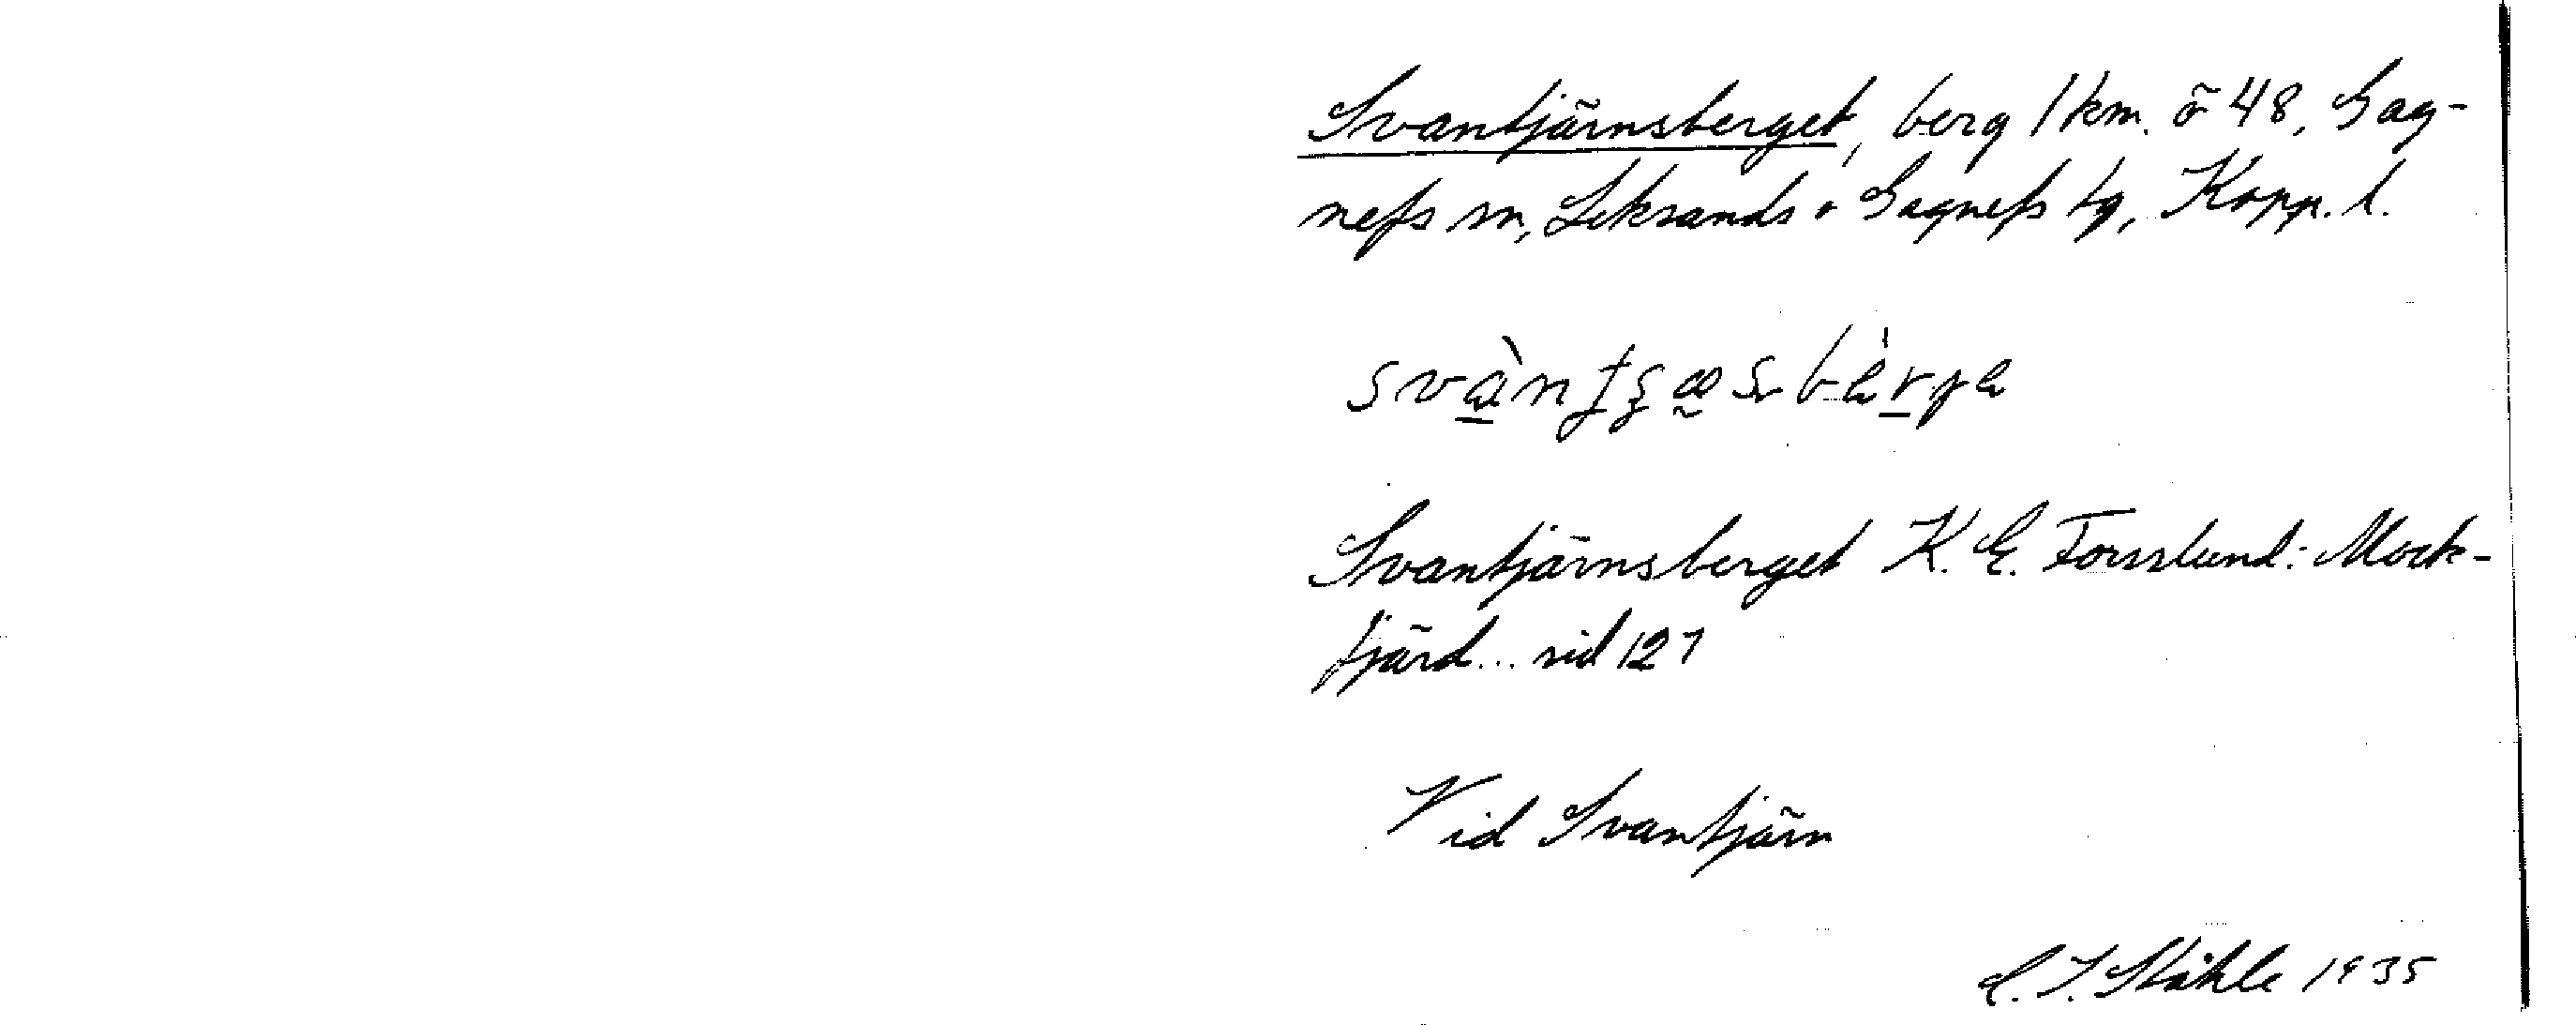 Svantjärnsberget, berg 1 km. ö 48, Gag-
nefs sn, Leksands o Gagnefs tg, Kopp. l.
Svantjärnsberget K. E. Forsslund: Mock-
fjärd... sid 127
Vid Svantjärn
C. I. Ståhle 1935